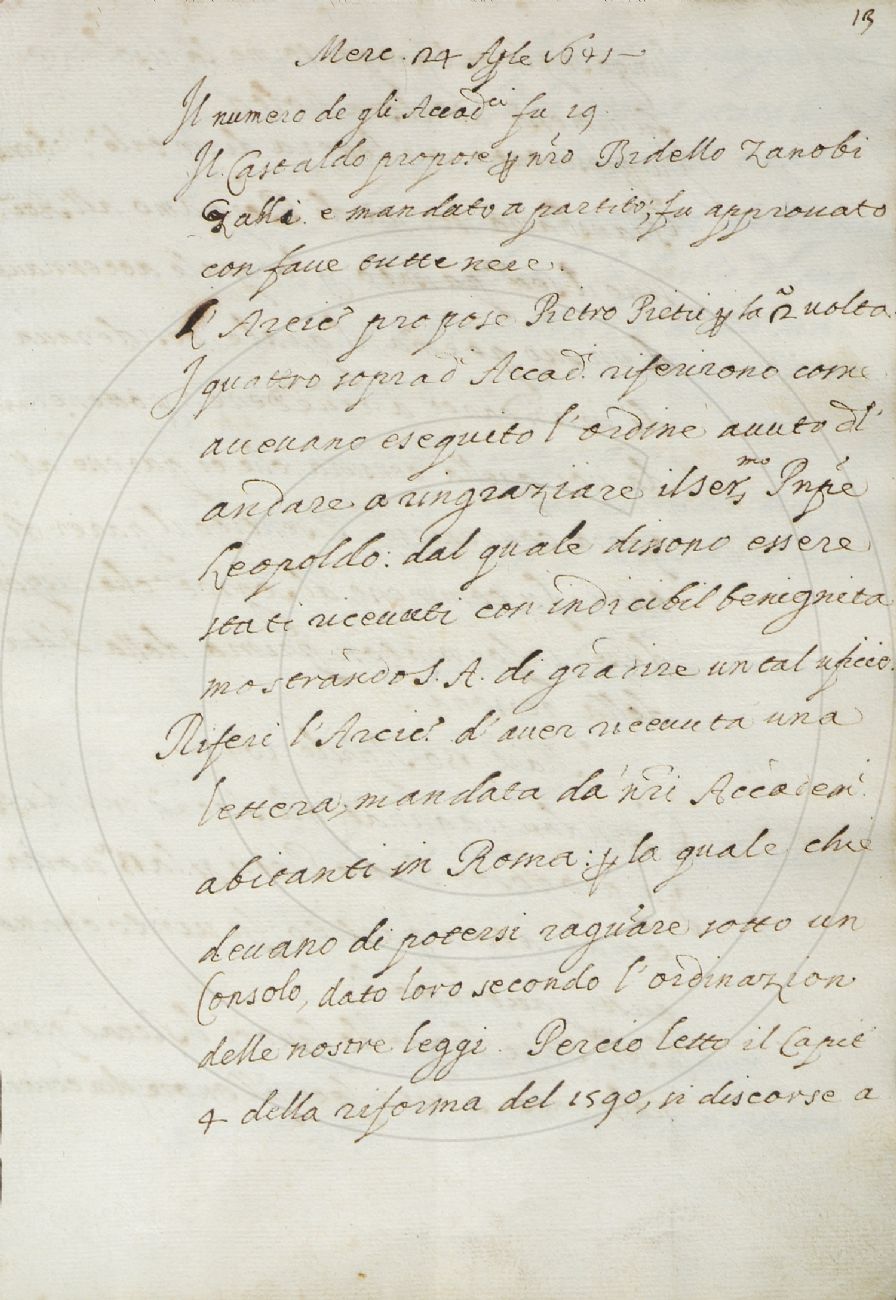 13
Merc. 24 Aple 1641
Il numero de gli Accadci fu 19.
Il Castaldo propose p nro Bidello Zanobi
Zalli e mandato a partito, fu approuato
con faue tutte nere.
L'Arcico propose Pietro Pieti p la 2a uolta.
I quattro soprad. Accad. riferirono come
aueuano eseguito l'ordine auuto d'
andare a ringraziare il Sermo Pnpe
Leopoldo: dal quale dissono essere
stati riceuuti con indicibil benignita
mostrandos S. A. di gradire un tal uficio.
Riferi l'Arcico d'auer riceuuta una
lettera, mandata da nri Accadem.
abitanti in Roma: p la quale chie
deuano di potersi ragunare sotto un
Consolo, dato loro secondo l'ordinazion
delle nostre leggi. Percio letto il Capit
4 della riforma del 1590, si discorse a